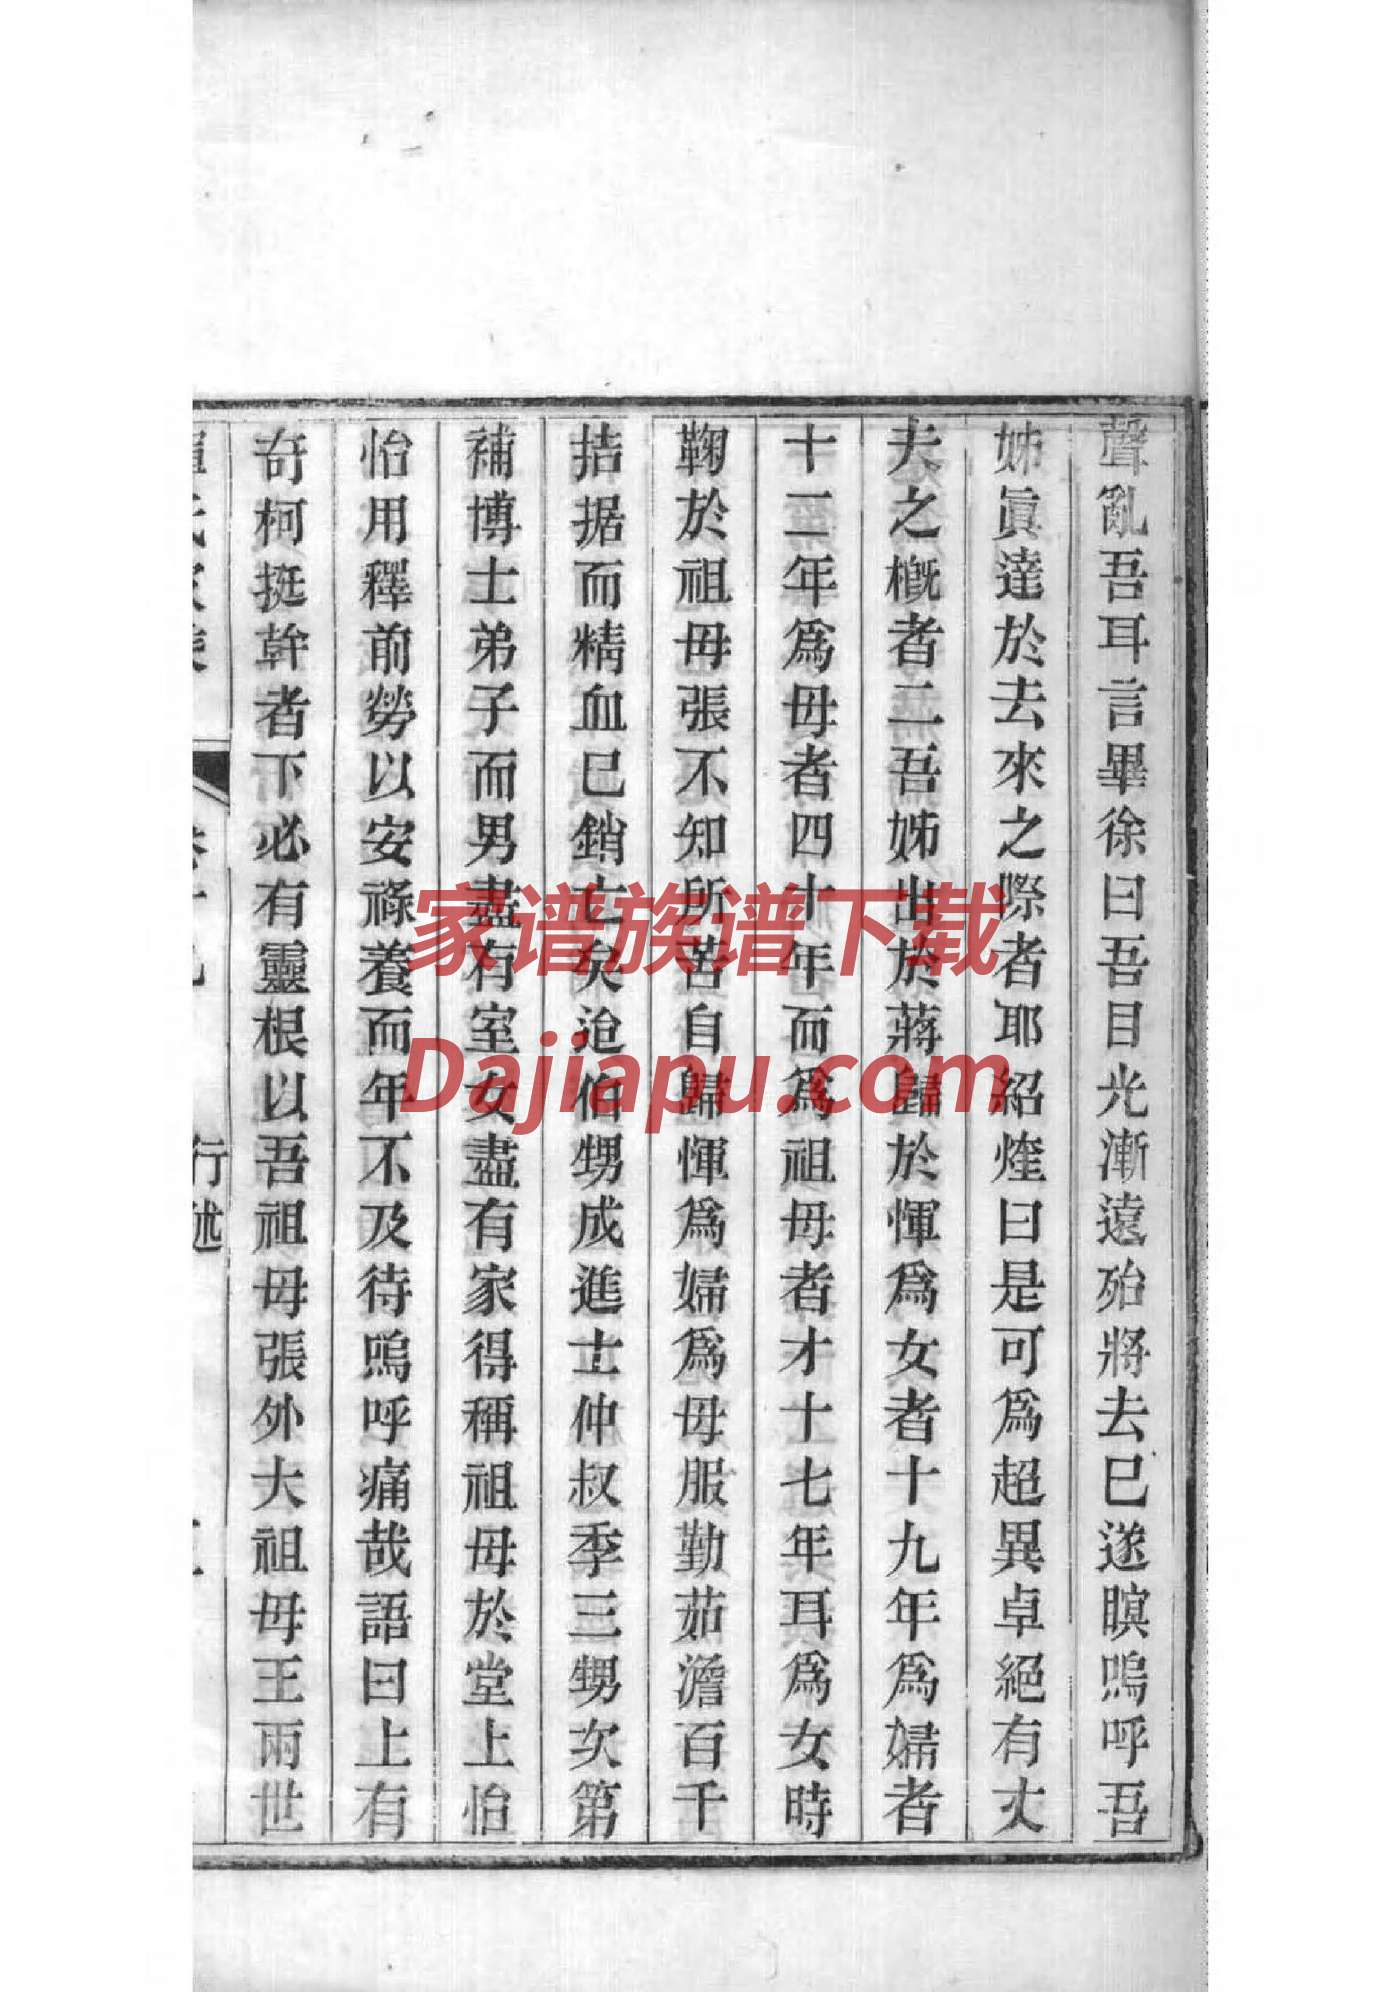 聲亂吾耳言畢徐曰吾目光漸遠殆將去已遂瞑嗚呼吾
姊眞達於去來之際者耶紹煃曰是可爲超異卓絕有丈
夫之概者二吾姊出於蔣歸於惲爲女者十九年爲婦者
十二年爲母者四十年而爲祖母者才十七年耳爲女時
鞠於祖母張不知所苦自歸惲爲婦爲母服勤茹澹百千
拮据而精血已銷亡矣迨伯甥成進士仲叔季三甥次第
補博士弟子而男盡有室女盡有家得稱祖母於堂上怡
怡用釋前勞以安祿養而年不及待嗚呼痛哉語曰上有
奇柯挺幹者下必有靈根以吾祖母張外大祖母王兩世
行述
家谱族谱下载
Dajiapu.com